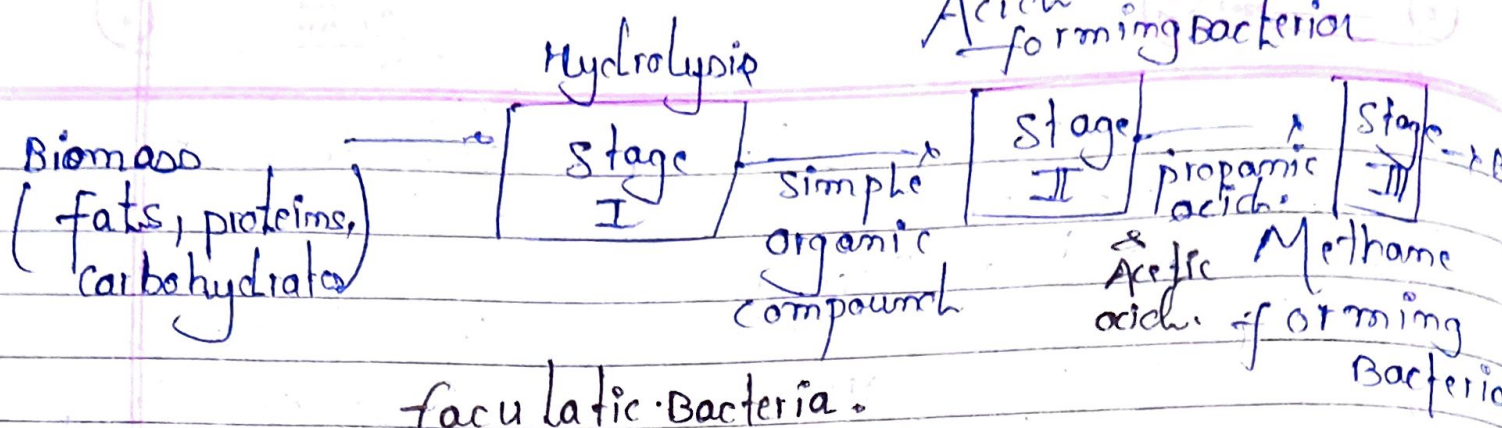 Acid
forming Bacteria
Hydrolysis
Biomass
(fats, proteins,
carbohydrates)
Stage
I
simple
organic
compound
Stage
II
propanic
acid.
&
Acetic
acid.
Stage
III
Methane
forming
Bacteria
faculatic Bacteria.